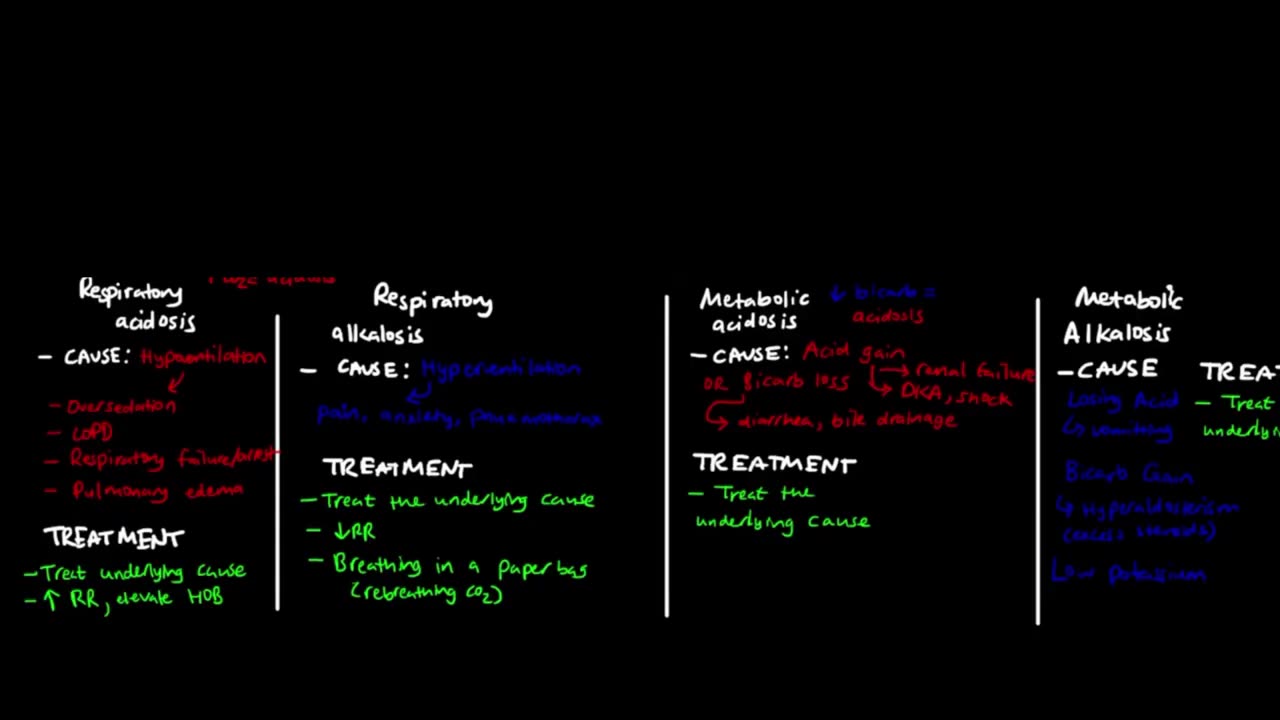 Respiratory
acidosis
- CAUSE: Hypoventilation
- Oversedation
- COPD
- Respiratory failure/arrest
- Pulmonary edema
TREATMENT
- Treat underlying cause
- ↑ RR, elevate HOB
Respiratory
alkalosis
- CAUSE: Hyperventilation
pain, anxiety,
TREATMENT
- Treat the underlying cause
- ↓RR
- Breathing in a paper bag
(rebreathing CO2)
Metabolic
acidosis
↓ bicarb =
acidosis
- CAUSE: Acid gain
→ renal failure
OR Bicarb loss
→ DKA, shock
→ diarrhea, bile drainage
TREATMENT
- Treat the
underlying cause
Metabolic
Alkalosis
- CAUSE
Losing Acid
↳ vomiting
Bicarb Gain
↳ Hyperaldosterism
(excess steroids)
Low potassium
TREA
- Treat
underlyin